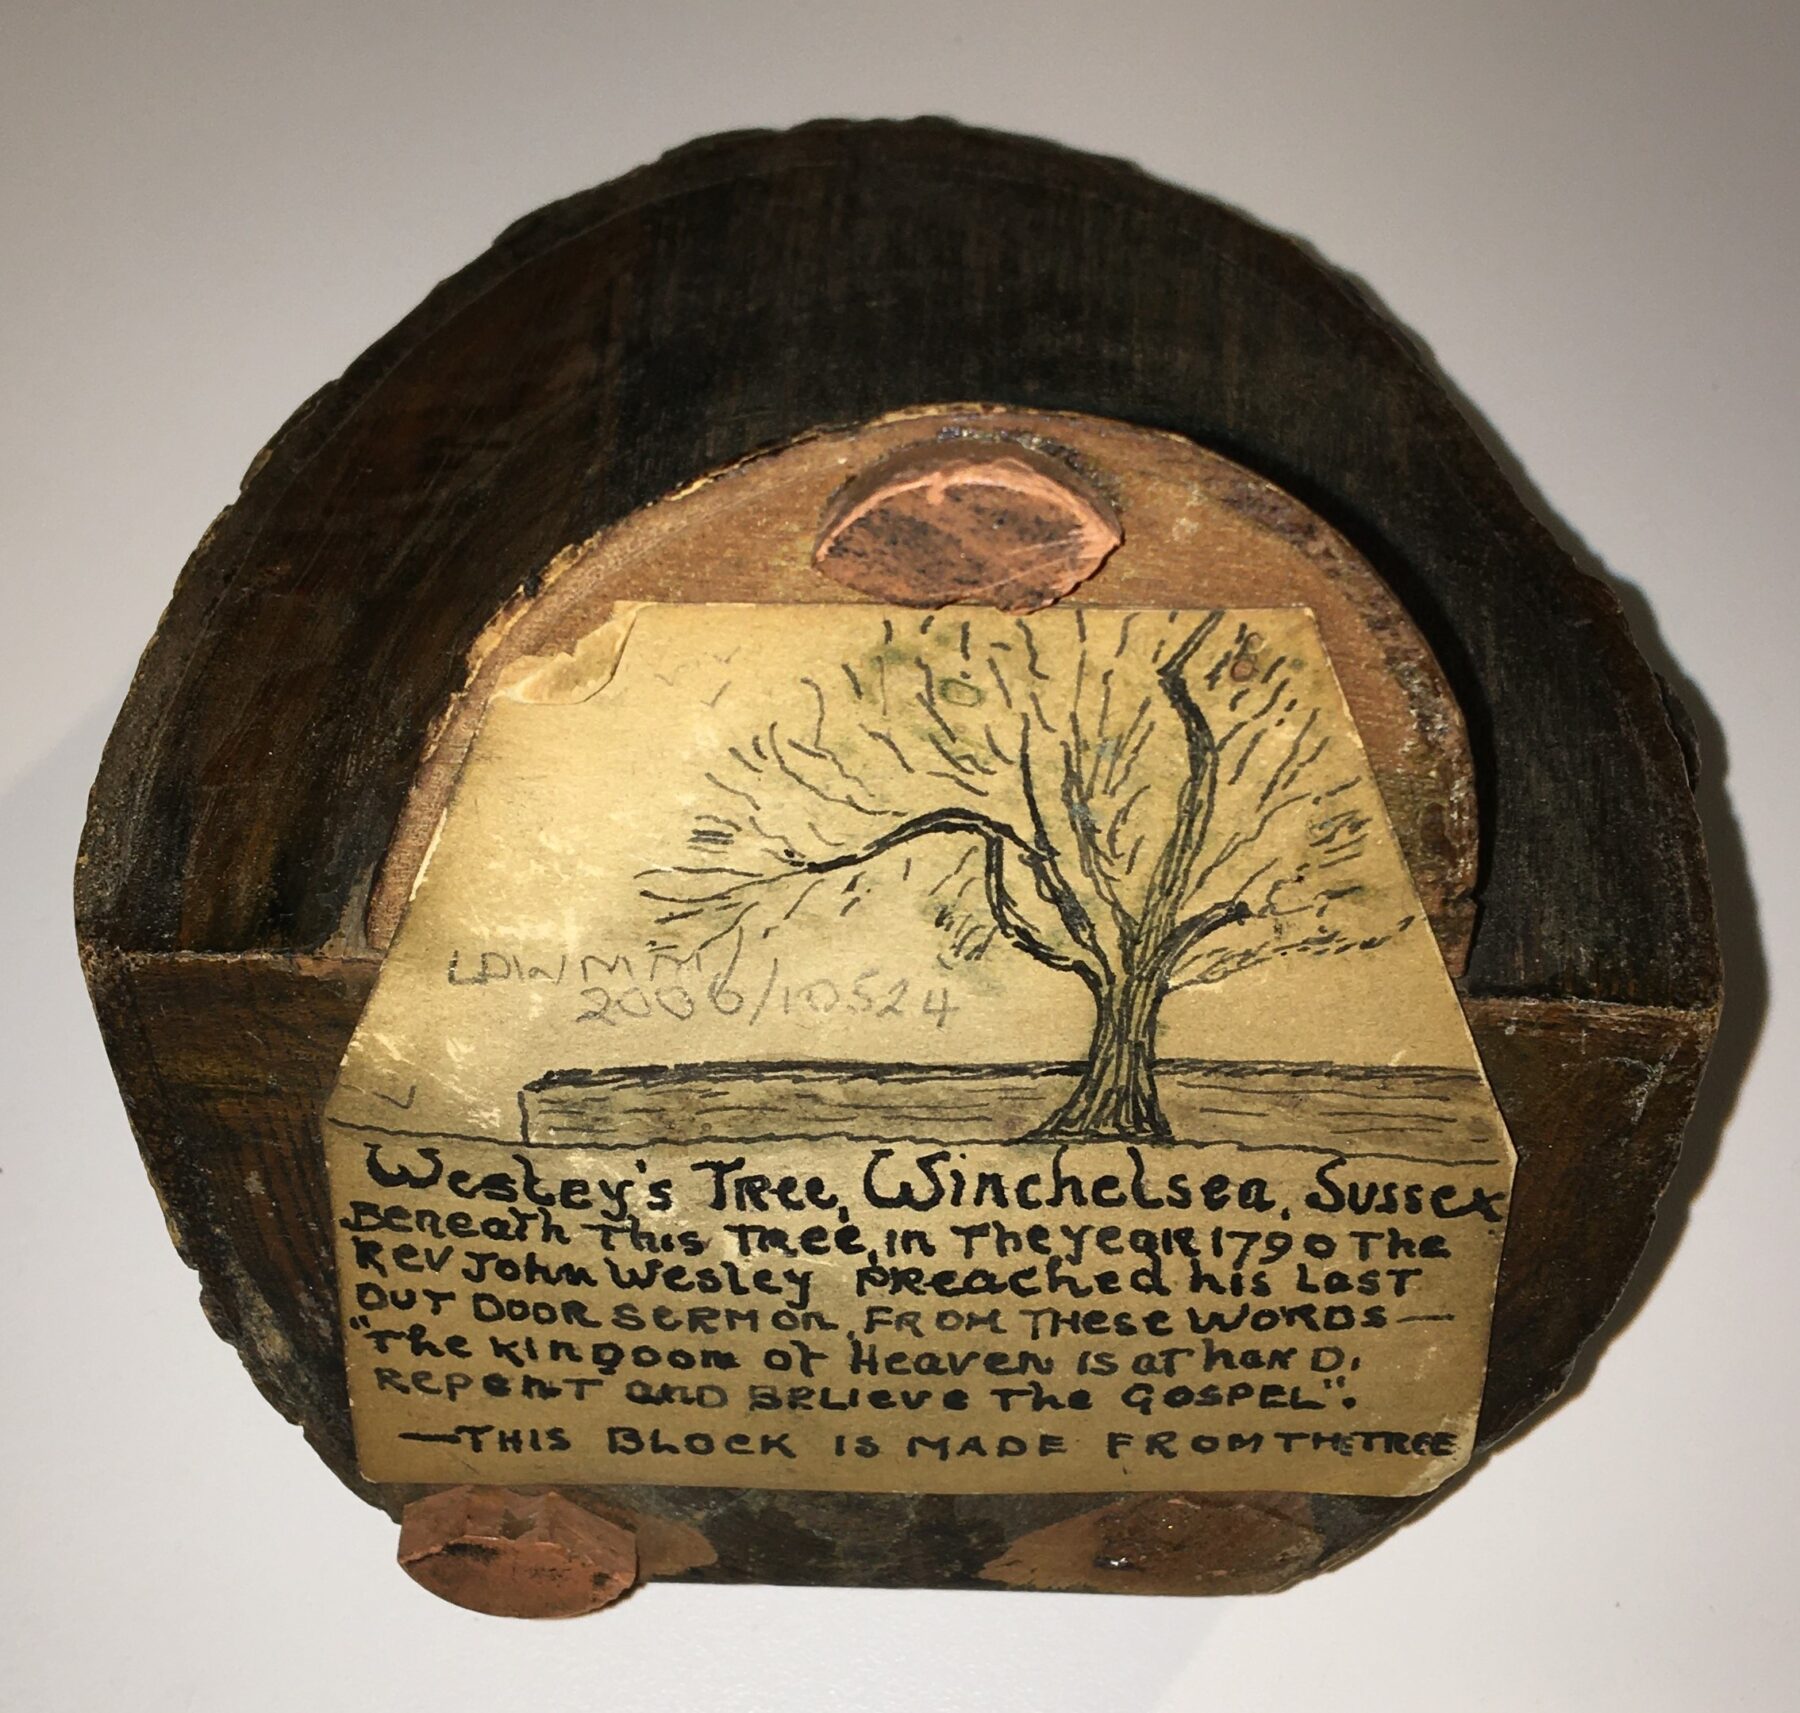 LDWMM
2006/10524
Wesley's Tree, Winchelsea, Sussex
Beneath This Tree, in The year 1790 The
Rev John Wesley Preached his Last
OUT DOOR SERMON, FROM THESE WORDS—
"The Kingdom of Heaven is at hand,
Repent and Believe The GOSPEL".
—THIS BLOCK IS MADE FROM THE TREE